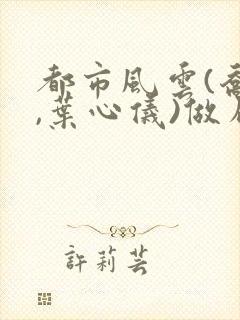 都市風雲(喬
,葉心儀)做
許莉芸